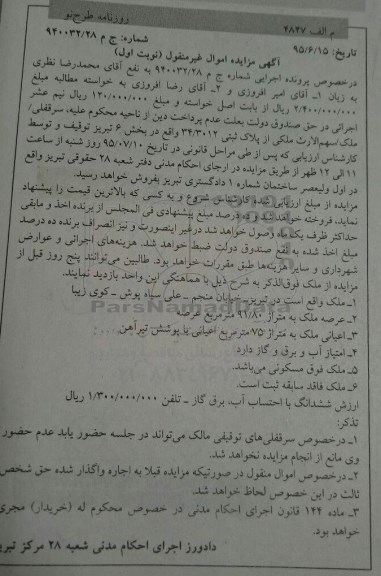 روزنامه طرح‌نو
م الف ۲۸۲۷
تاریخ: ۹۵/۶/۱۵
شماره: ج م ۹۴۰۰۳۲/۲۸
آگهی مزایده اموال غیرمنقول (نوبت اول)
درخصوص پرونده اجرایی شماره ج م ۹۴۰۰۳۲/۲۸ به نفع آقای محمدرضا نظری
به زیان ۱ـ آقای امیر افروزی و ۲ـ آقای رضا افروزی به خواسته مطالبه مبلغ
۲/۴۰۰/۰۰۰/۰۰۰ ریال از بابت اصل خواسته و مبلغ ۱۲۰/۰۰۰/۰۰۰ ریال نیم عشر
اجرائی در حق صندوق دولت بعلت عدم پرداخت دین از ناحیه محکوم علیه، سرقفلی/
ملک/سهم‌الارث ملکی از پلاک ثبتی ۳۴/۳۰۱۲ واقع در بخش ۶ تبریز توقیف و توسط
کارشناس ارزیابی که پس از طی مراحل قانونی در تاریخ ۹۵/۰۷/۱۰ روز شنبه از ساعت
۱۱ الی ۱۲ ظهر از طریق مزایده در اجرای احکام مدنی دفتر شعبه ۲۸ حقوقی تبریز واقع
در اول ولیعصر ساختمان شماره ۱ دادگستری تبریز بفروش خواهد رسید.
مزایده از مبلغ ارزیابی شده کارشناس شروع و به کسی که بالاترین قیمت را پیشنهاد
نماید، فروخته خواهد شد و ده درصد مبلغ پیشنهادی فی المجلس از برنده اخذ و مابقی
حداکثر ظرف یک ماه وصول خواهد شد درغیر اینصورت و نیز انصراف برنده ده درصد
مبلغ اخذ شده به نفع صندوق دولت ضبط خواهد شد. هزینه‌های اجرائی و عوارض
شهرداری و سایر هزینه‌ها طبق مقررات خواهد بود. طالبین می‌توانند پنج روز قبل از
مزایده از ملک فوق‌الذکر به شرح ذیل با هماهنگی این واحد بازدید نمایند.
۱ـ ملک واقع است در تبریزـ خیابان منجم ـ علی سیاه پوش ـ کوی زیبا
۲ـ عرصه ملک به متراژ ۹۱/۸۰ مترمربع عرصه
۳ـ اعیانی ملک به متراژ ۷۵ مترمربع اعیانی با پوشش تیرآهن
۴ـ امتیاز آب و برق و گاز دارد
۵ـ ملک فوق مسکونی می‌باشد.
۶ـ ملک فاقد سابقه ثبت است.
ارزش ششدانگ با احتساب آب، برق گاز ـ تلفن ۱/۳۰۰/۰۰۰/۰۰۰ ریال
تذکر:
۱ـ درخصوص سرقفلی‌های توقیفی مالک می‌تواند در جلسه حضور یابد عدم حضور
وی مانع از انجام مزایده نخواهد شد.
۲ـ درخصوص اموال منقول در صورتیکه مزایده قبلا به اجاره واگذار شده حق شخص
ثالث در این خصوص لحاظ خواهد شد.
۳ـ ماده ۱۴۴ قانون اجرای احکام مدنی در خصوص محکوم له (خریدار) مجری
خواهد بود.
دادورز اجرای احکام مدنی شعبه ۲۸ مرکز تبریز
ParsNamadData